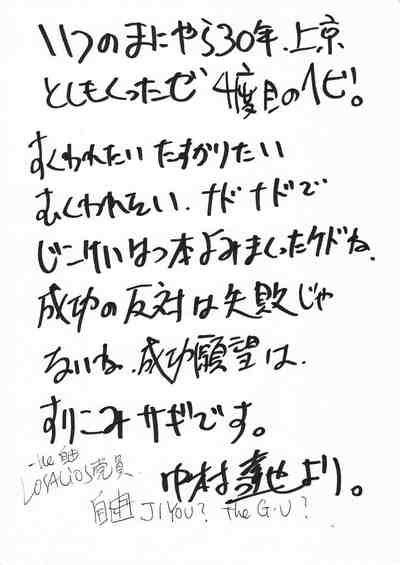 いつのまにやら30年.上京
としもくったゼ 4度目のヘビ!
すくわれたい たすかりたい
むくわれたい.ナドナドで
じこけいはつ本よみまくったケドね.
成功の反対は失敗じゃ
ないね.成功願望は.
すりこみサギです。
中村達也より。
-he 自由
LOSALIOS党員
自由 JIYOU? the G.U?